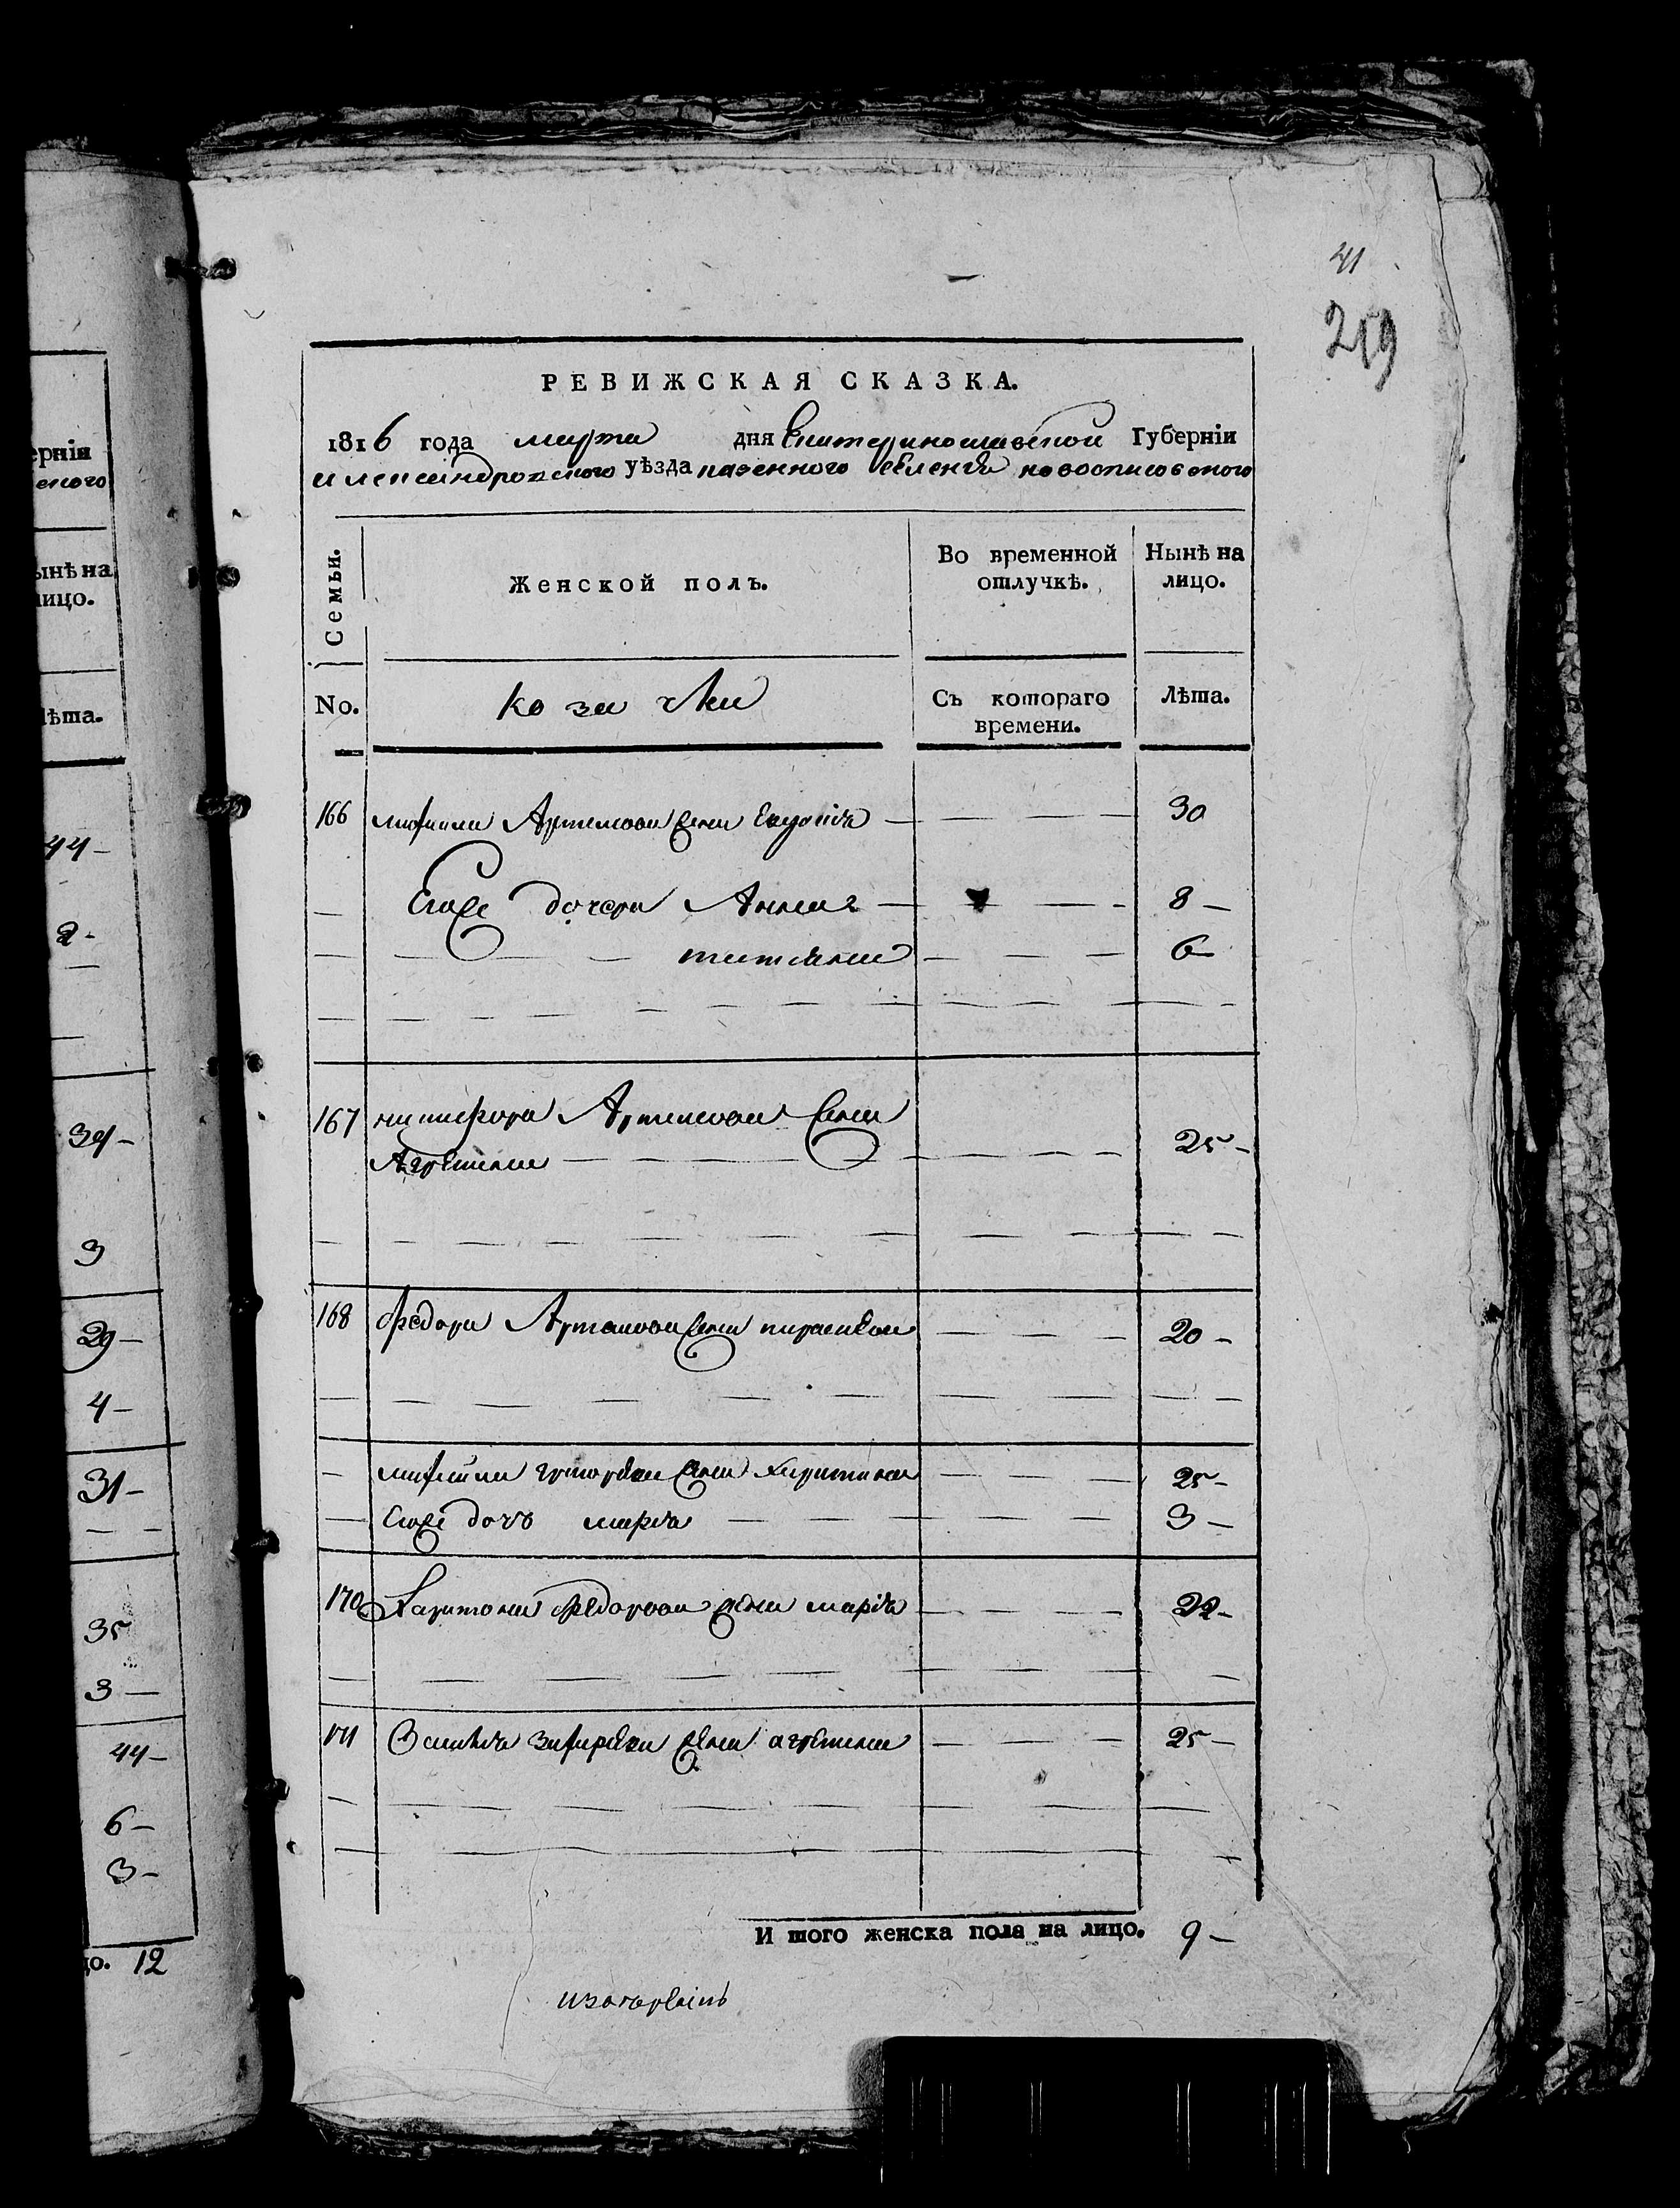 41
259
РЕВИЖСКАЯ СКАЗКА.
1816 года марта дня Екатеринославской Губерніи
александровского уѣзда казенного селенія новоспасовского
Семьи.
Женской полъ.
Во временной отлучкѣ.
Нынѣ на лицо.
No.
козачки
Съ котораго времени.
Лѣта.
166 михаила Артемова жена Евдокія — — — 30
— Егоже дочери Анна — — — 8 —
— — — — татяна — — — 6 —
167 никифора Артемова жена
Агрепина — — — — 25 —
168 Федора Артемова жена параскева — — — 20 —
— михайла григорева жена Харитина — — — 25 —
— Егоже дочъ марія — — — 3 —
170 Харитона Федорова жена марія — — — 22 —
171 Василія захарева жена агрепина — — — 25 —
И того женска пола на лицо. 9 —
ерніи
ского
ынѣ на
лицо.
лѣта.
44 —
2 -
34 —
3
29 —
4 —
31 —
35
3 —
44 —
6 —
3 —
цо. 12